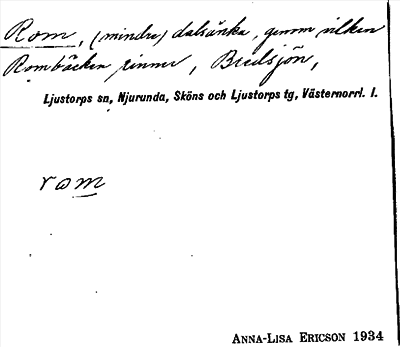 Rom, (mindre) dalsänka, genom vilken
Rombäcken rinner, Bredsjön,
Ljustorps sn, Njurunda, Sköns och Ljustorps tg, Västernorrl. l.
rom
ANNA-LISA ERICSON 1934